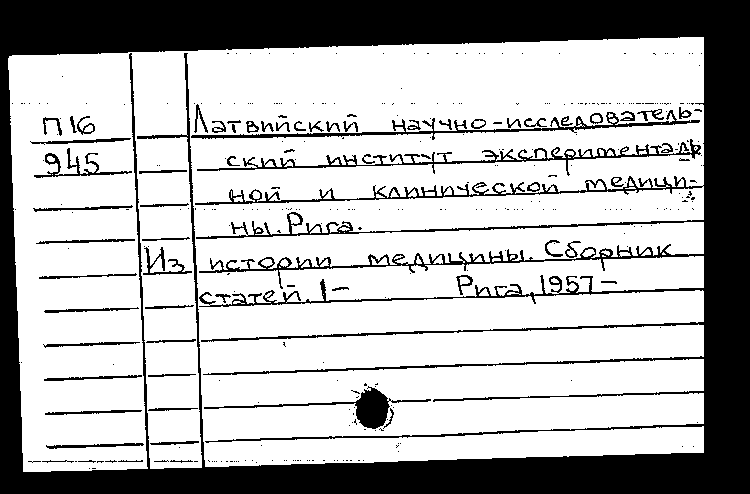 П16 Латвийский научно-исследователь-
945 ский институт эксперименталь
ной и клинической медици-
ны. Рига.
Из истории медицины. Сборник
статей. 1— Рига, 1957—